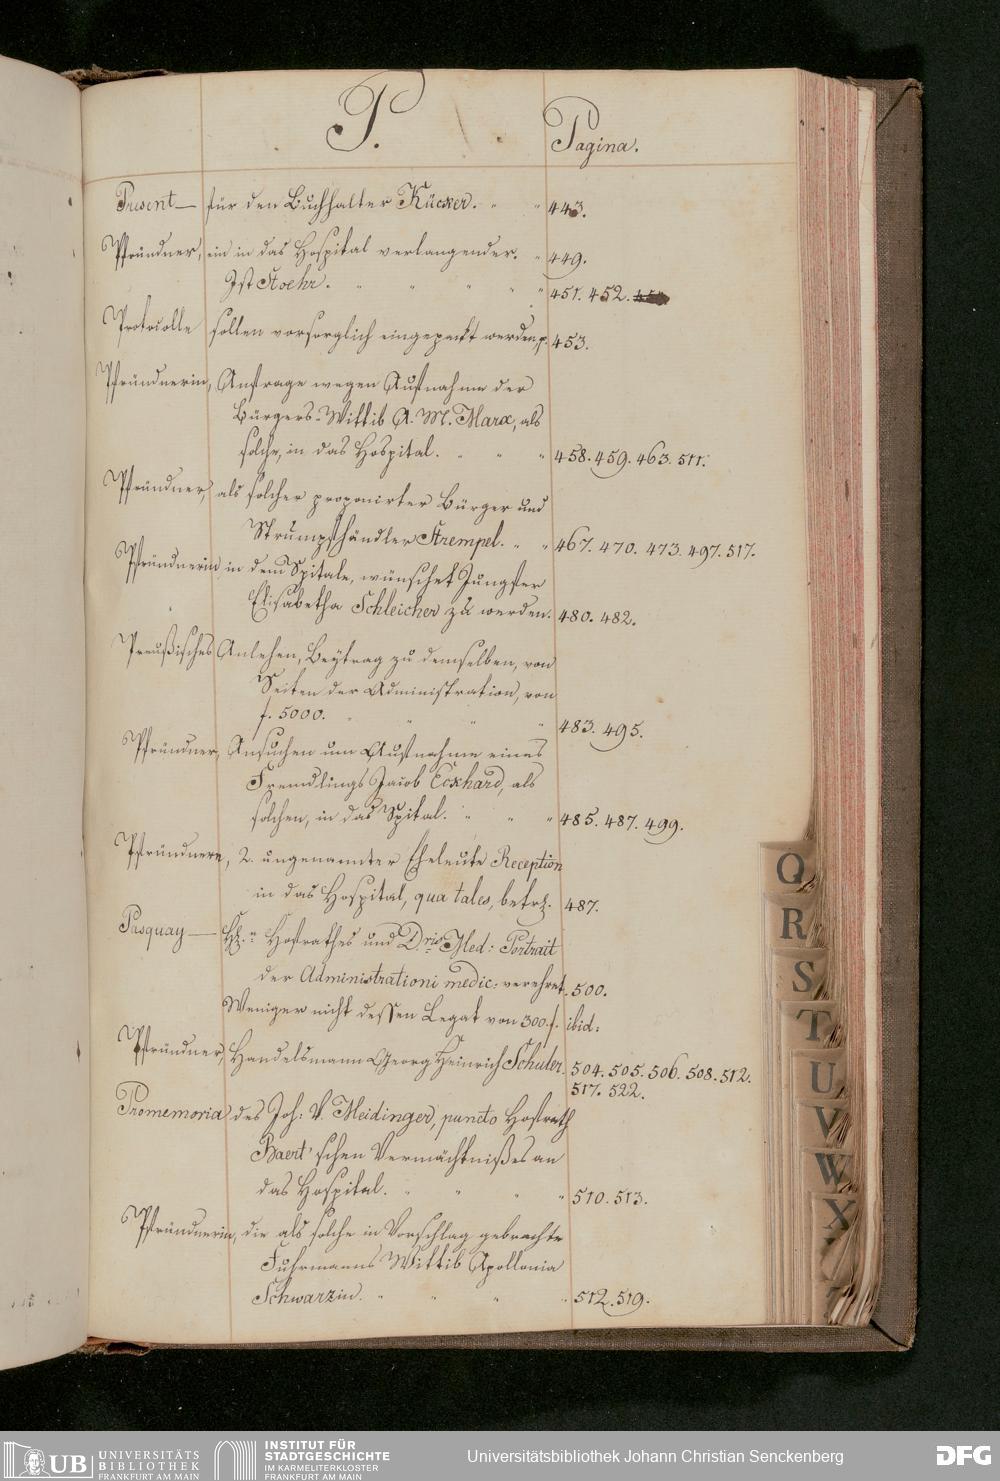 P.
Pagina.
Present — für den Buchhalter Kücker. 443.
Pfründner, ein in das Hospital verlangender. 449.
Ist Stoehr. 451. 452.
Protocolle sollen vorsorglich eingepackt werden, p. 453.
Pfründnerin, Anfrage wegen Aufnahme der
Bürgers-Wittib A. M. Marx, als
solche, in das Hospital. 458. 459. 463. 511.
Pfründner, als solcher proponirter Bürger und
Strumpfhändler Strempel. 467. 470. 473. 497. 517.
Pfründnerin in dem Spitale, wünschet Jungfer
Elisabetha Schleicher zu werden. 480. 482.
Preußisches Anlehen, Beytrag zu demselben, von
Seiten der Administration, von
f. 5000. 483. 495.
Pfründner, Ansuchen um Aufnahme eines
Fremdlings Jacob Eckhard, als
solchen, in das Spital. 485. 487. 499.
Pfründnere, 2. ungenannter Eheleute Reception
in das Hospital, qua tales, betrf. 487.
Pasquay — Hofrathes und Dris Med: Portrait
der Administrationi medic: verehret 500.
Weniger nicht dessen Legat von 300. f. ibid:
Pfründner, Handelsmann Georg Heinrich Schuler. 504. 505. 506. 508. 512.
517. 522.
Promemoria des Joh: V. Meidinger, puncto Hofrath
Baert'schen Vermächtnißes an
das Hospital. 510. 513.
Pfründnerin, die als solche in Vorschlag gebrachte
Fuhrmanns Wittib Apollonia
Schwarzin. 512. 519.
Q
R
S
T
U
V
W
X
UB UNIVERSITÄTS
BIBLIOTHEK
FRANKFURT AM MAIN
INSTITUT FÜR
STADTGESCHICHTE
IM KARMELITERKLOSTER
FRANKFURT AM MAIN
Universitätsbibliothek Johann Christian Senckenberg
DFG